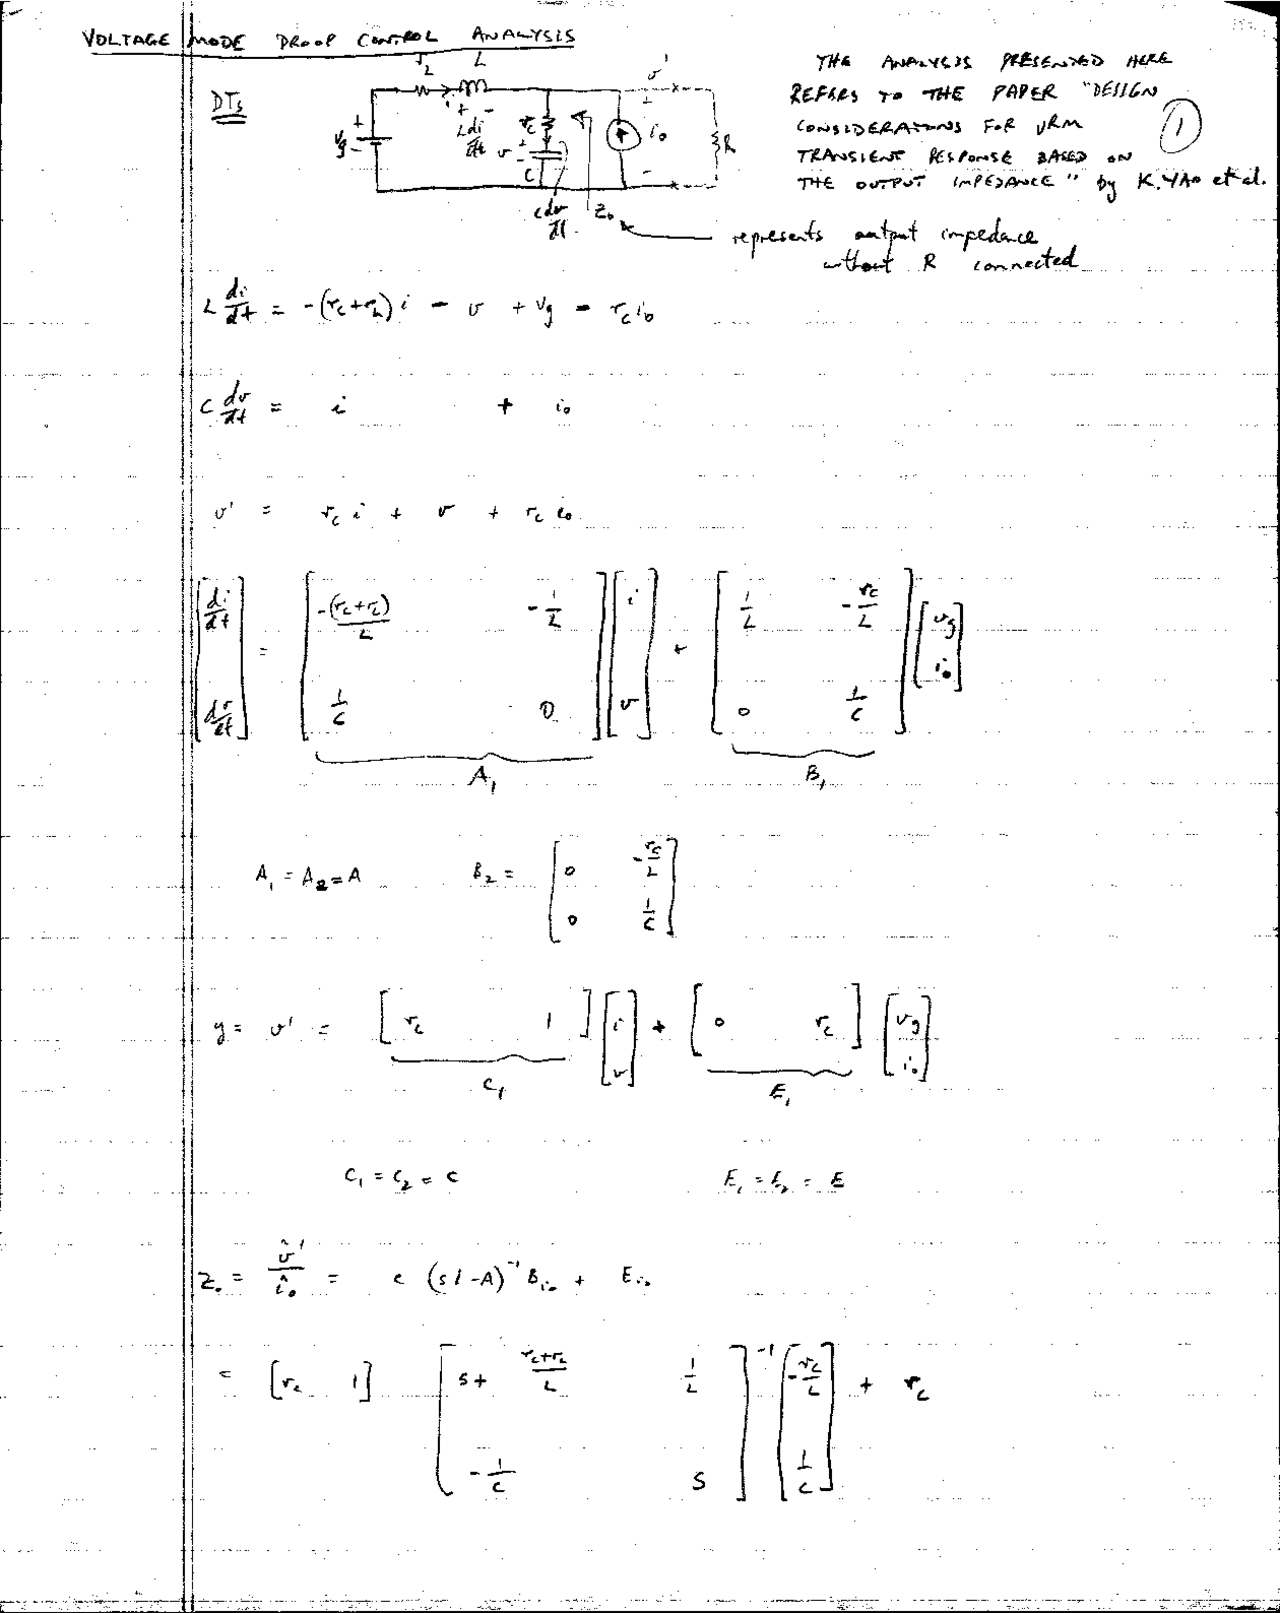 VOLTAGE MODE DROOP CONTROL ANALYSIS
THE ANALYSIS PRESENTED HERE
REFERS TO THE PAPER "DESIGN
CONSIDERATIONS FOR VRM
TRANSIENT RESPONSE BASED ON
THE OUTPUT IMPEDANCE" by K. YAO et al.
1
DTs
r_L L
+ -
i L di/dt
+ v_g -
r_c
+ v -
C
C dv/dt
Z_o
i_o
+ v' -
R
represents output impedance
without R connected
L di/dt = -(r_c+r_L) i - v + v_g - r_c i_o
C dv/dt = i + i_o
v' = r_c i + v + r_c i_o
[di/dt ; dv/dt] = [-(r_c+r_L)/L -1/L ; 1/C 0] [i ; v] + [1/L -r_c/L ; 0 1/C] [v_g ; i_o]
A_1 B_1
A_1 = A_2 = A B_2 = [0 -r_c/L ; 0 1/C]
y = v' = [r_c 1] [i ; v] + [0 r_c] [v_g ; i_o]
C_1 E_1
C_1 = C_2 = C E_1 = E_2 = E
Z_o = v̂'/î_o = C (sI-A)^-1 B_io + E_io
= [r_c 1] [s+ (r_c+r_L)/L 1/L ; -1/C s]^-1 [-r_c/L ; 1/C] + r_c